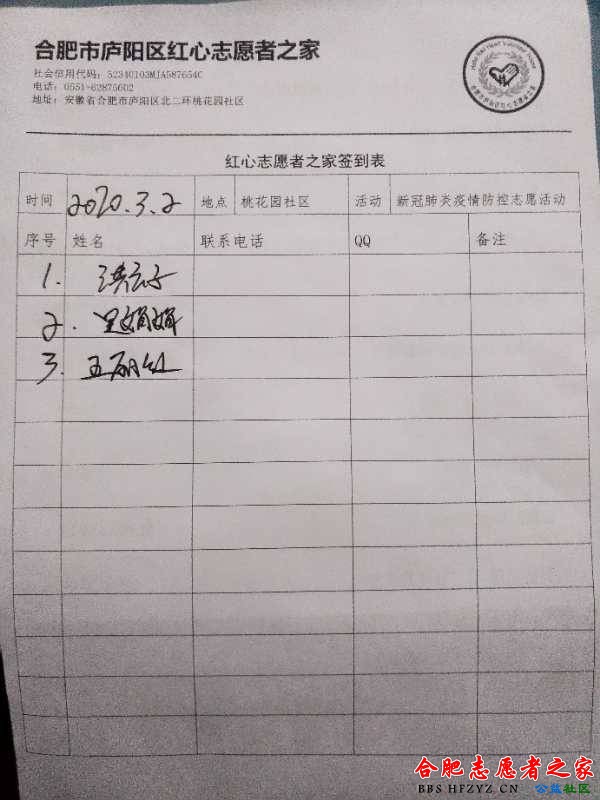 合肥市庐阳区红心志愿者之家
社会信用代码：52340103MJA587654C
电话：0551-62875602
地址：安徽省合肥市庐阳区北二环桃花园社区
红心志愿者之家签到表
时间 2020.3.2 地点 桃花园社区 活动 新冠肺炎疫情防控志愿活动
序号 姓名 联系电话 QQ 备注
1.
2. 娟娟
3. 王丽红
合肥志愿者之家
BBS HFZYZ.CN 公益社区